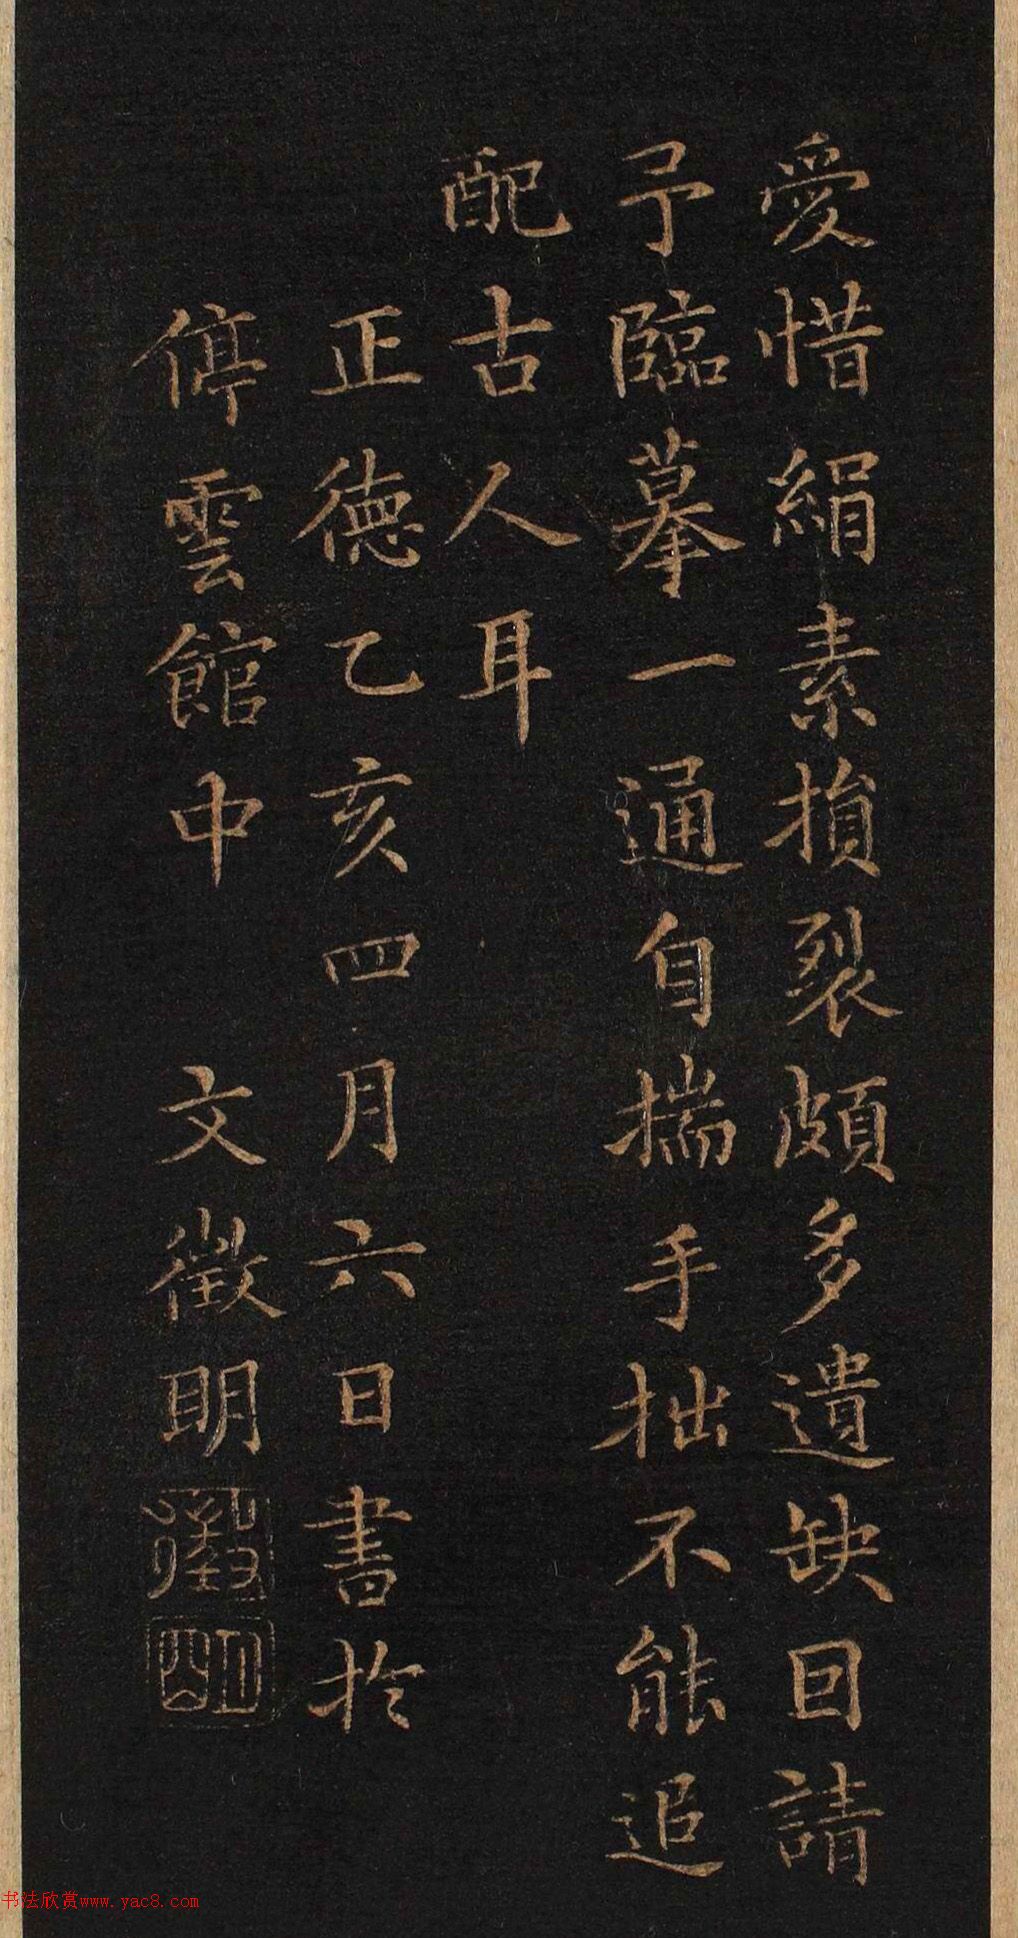 愛惜絹素損裂頗多遺缺因請
予臨摹一通自揣手拙不能追
配古人耳
正德乙亥四月六日書於
停雲館中 文徵明
徵
明
书法欣赏www.yac8.com